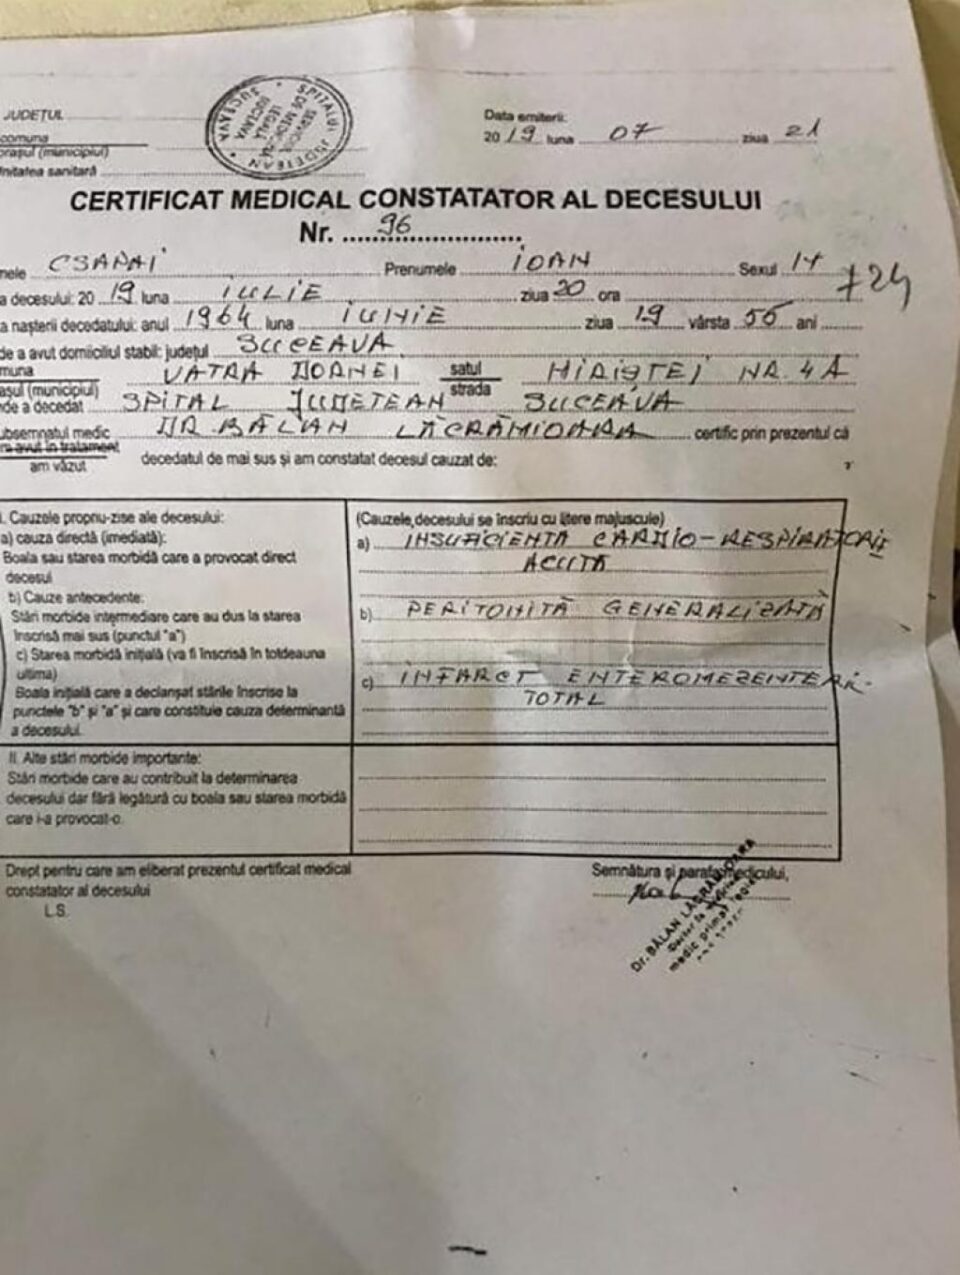 JUDEȚUL
comuna
orașul (municipiul)
nitatea sanitară
SPITALUL JUDEȚEAN SUCEAVA
SERVICIUL DE MEDICINĂ LEGALĂ SUCEAVA
Data emiterii:
2019 luna 07 ziua 21
CERTIFICAT MEDICAL CONSTATATOR AL DECESULUI
Nr. 96
mele CSAPAI Prenumele IOAN Sexul
724
a decesului: 2019 luna IULIE ziua 20 ora
a nașterii decedatului: anul 1964 luna IUNIE ziua 19 vârsta 55 ani
de a avut domiciliul stabil: județul SUCEAVA
muna VATRA DORNEI satul NR. 4A
așul (municipiul) strada
de a decedat SPITAL JUDETEAN SUCEAVA
ubsemnatul medic DR. BĂLAN LĂCRĂMIOARA certific prin prezentul că
avut în tratament
am văzut decedatul de mai sus și am constatat decesul cauzat de:
I. Cauzele propriu-zise ale decesului:
a) cauza directă (imediată):
Boala sau starea morbidă care a provocat direct
decesul
b) Cauze antecedente:
Stări morbide intermediare care au dus la starea
înscrisă mai sus (punctul "a")
c) Starea morbidă inițială (va fi înscrisă în totdeauna
ultima)
Boala inițială care a declanșat stările înscrise la
punctele "b" și "a" și care constituie cauza determinantă
a decesului.
(Cauzele decesului se înscriu cu litere majuscule)
a) INSUFICIENTA CARDIO-RESPIRATORIE
ACUTA
b) PERITONITĂ GENERALIZATĂ
c) INFARCT ENTEROMEZENTERIC
TOTAL
II. Alte stări morbide importante:
Stări morbide care au contribuit la determinarea
decesului dar fără legătură cu boala sau starea morbidă
care i-a provocat-o.
Drept pentru care am eliberat prezentul certificat medical
constatator al decesului
L.S.
Semnătura și parafa medicului,
Dr. BĂLAN LĂCRĂMIOARA
medic primar legist